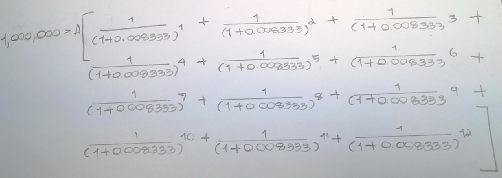 1,000,000 = A[ 1/(1+0.008333)^1 + 1/(1+0.008333)^2 + 1/(1+0.008333)^3 +
1/(1+0.008333)^4 + 1/(1+0.008333)^5 + 1/(1+0.008333)^6 +
1/(1+0.008333)^7 + 1/(1+0.008333)^8 + 1/(1+0.008333)^9 +
1/(1+0.008333)^10 + 1/(1+0.008333)^11 + 1/(1+0.008333)^12 ]